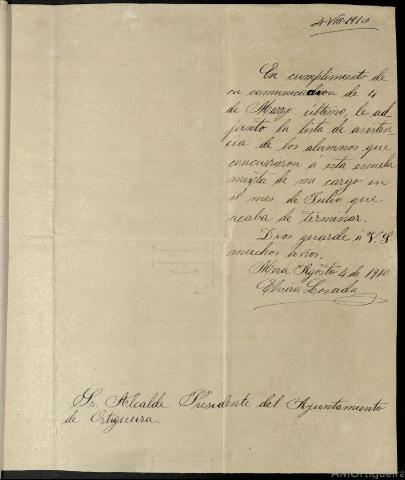 4-VIII-1910
En cumplimiento de
su comunicacion de 4
de Marzo último, le ad
junto la lista de asisten
cia de los alumnos que
concurrieron á esta escuela
mixta de mi cargo en
el mes de Julio que
acaba de terminar.
Dios guarde á V. S
muchos años.
Mera Agosto 4 de 1910
Elvira Losada
Sr. Alcalde Presidente del Ayuntamiento
de Ortigueira.
AMOrtigueira